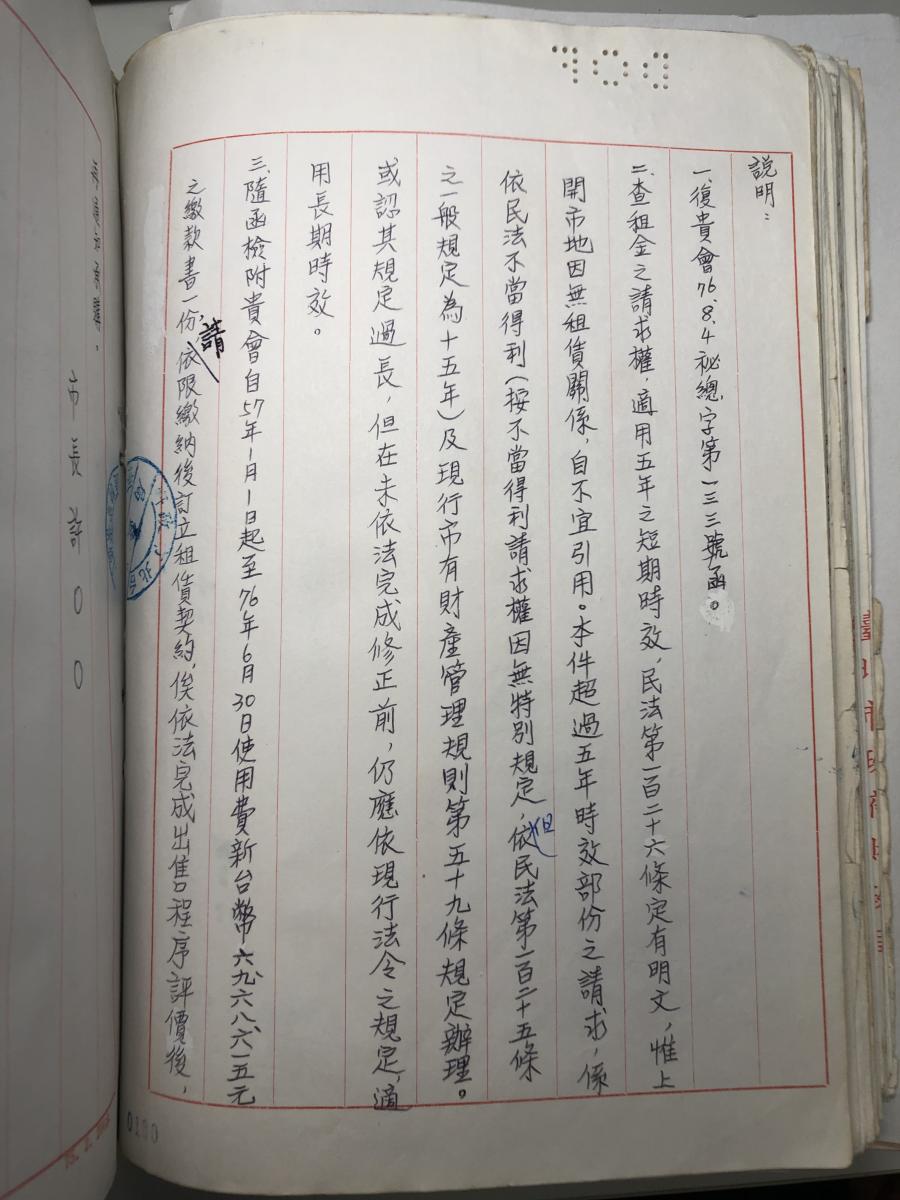 說明：
一、復貴會76.8.4祕總字第一三三號函。
二、查租金之請求權，適用五年之短期時效，民法第一百二十六條定有明文，惟上
開市地因無租賃關係，自不宜引用。本件超過五年時效部份之請求，係
依民法不當得利（按不當得利請求權因無特別規定，但依民法第一百二十五條
之一般規定為十五年）及現行市有財產管理規則第五十九條規定辦理。
或認其規定過長，但在未依法完成修正前，仍應依現行法令之規定，適
用長期時效。
三、隨函檢附貴會自57年1月1日起至76年6月30日使用費新台幣六九、六八八、六一五元
之繳款書一份，請依限繳納後訂立租賃契約，俟依法完成出售程序評價後，
市長許〇〇
0180